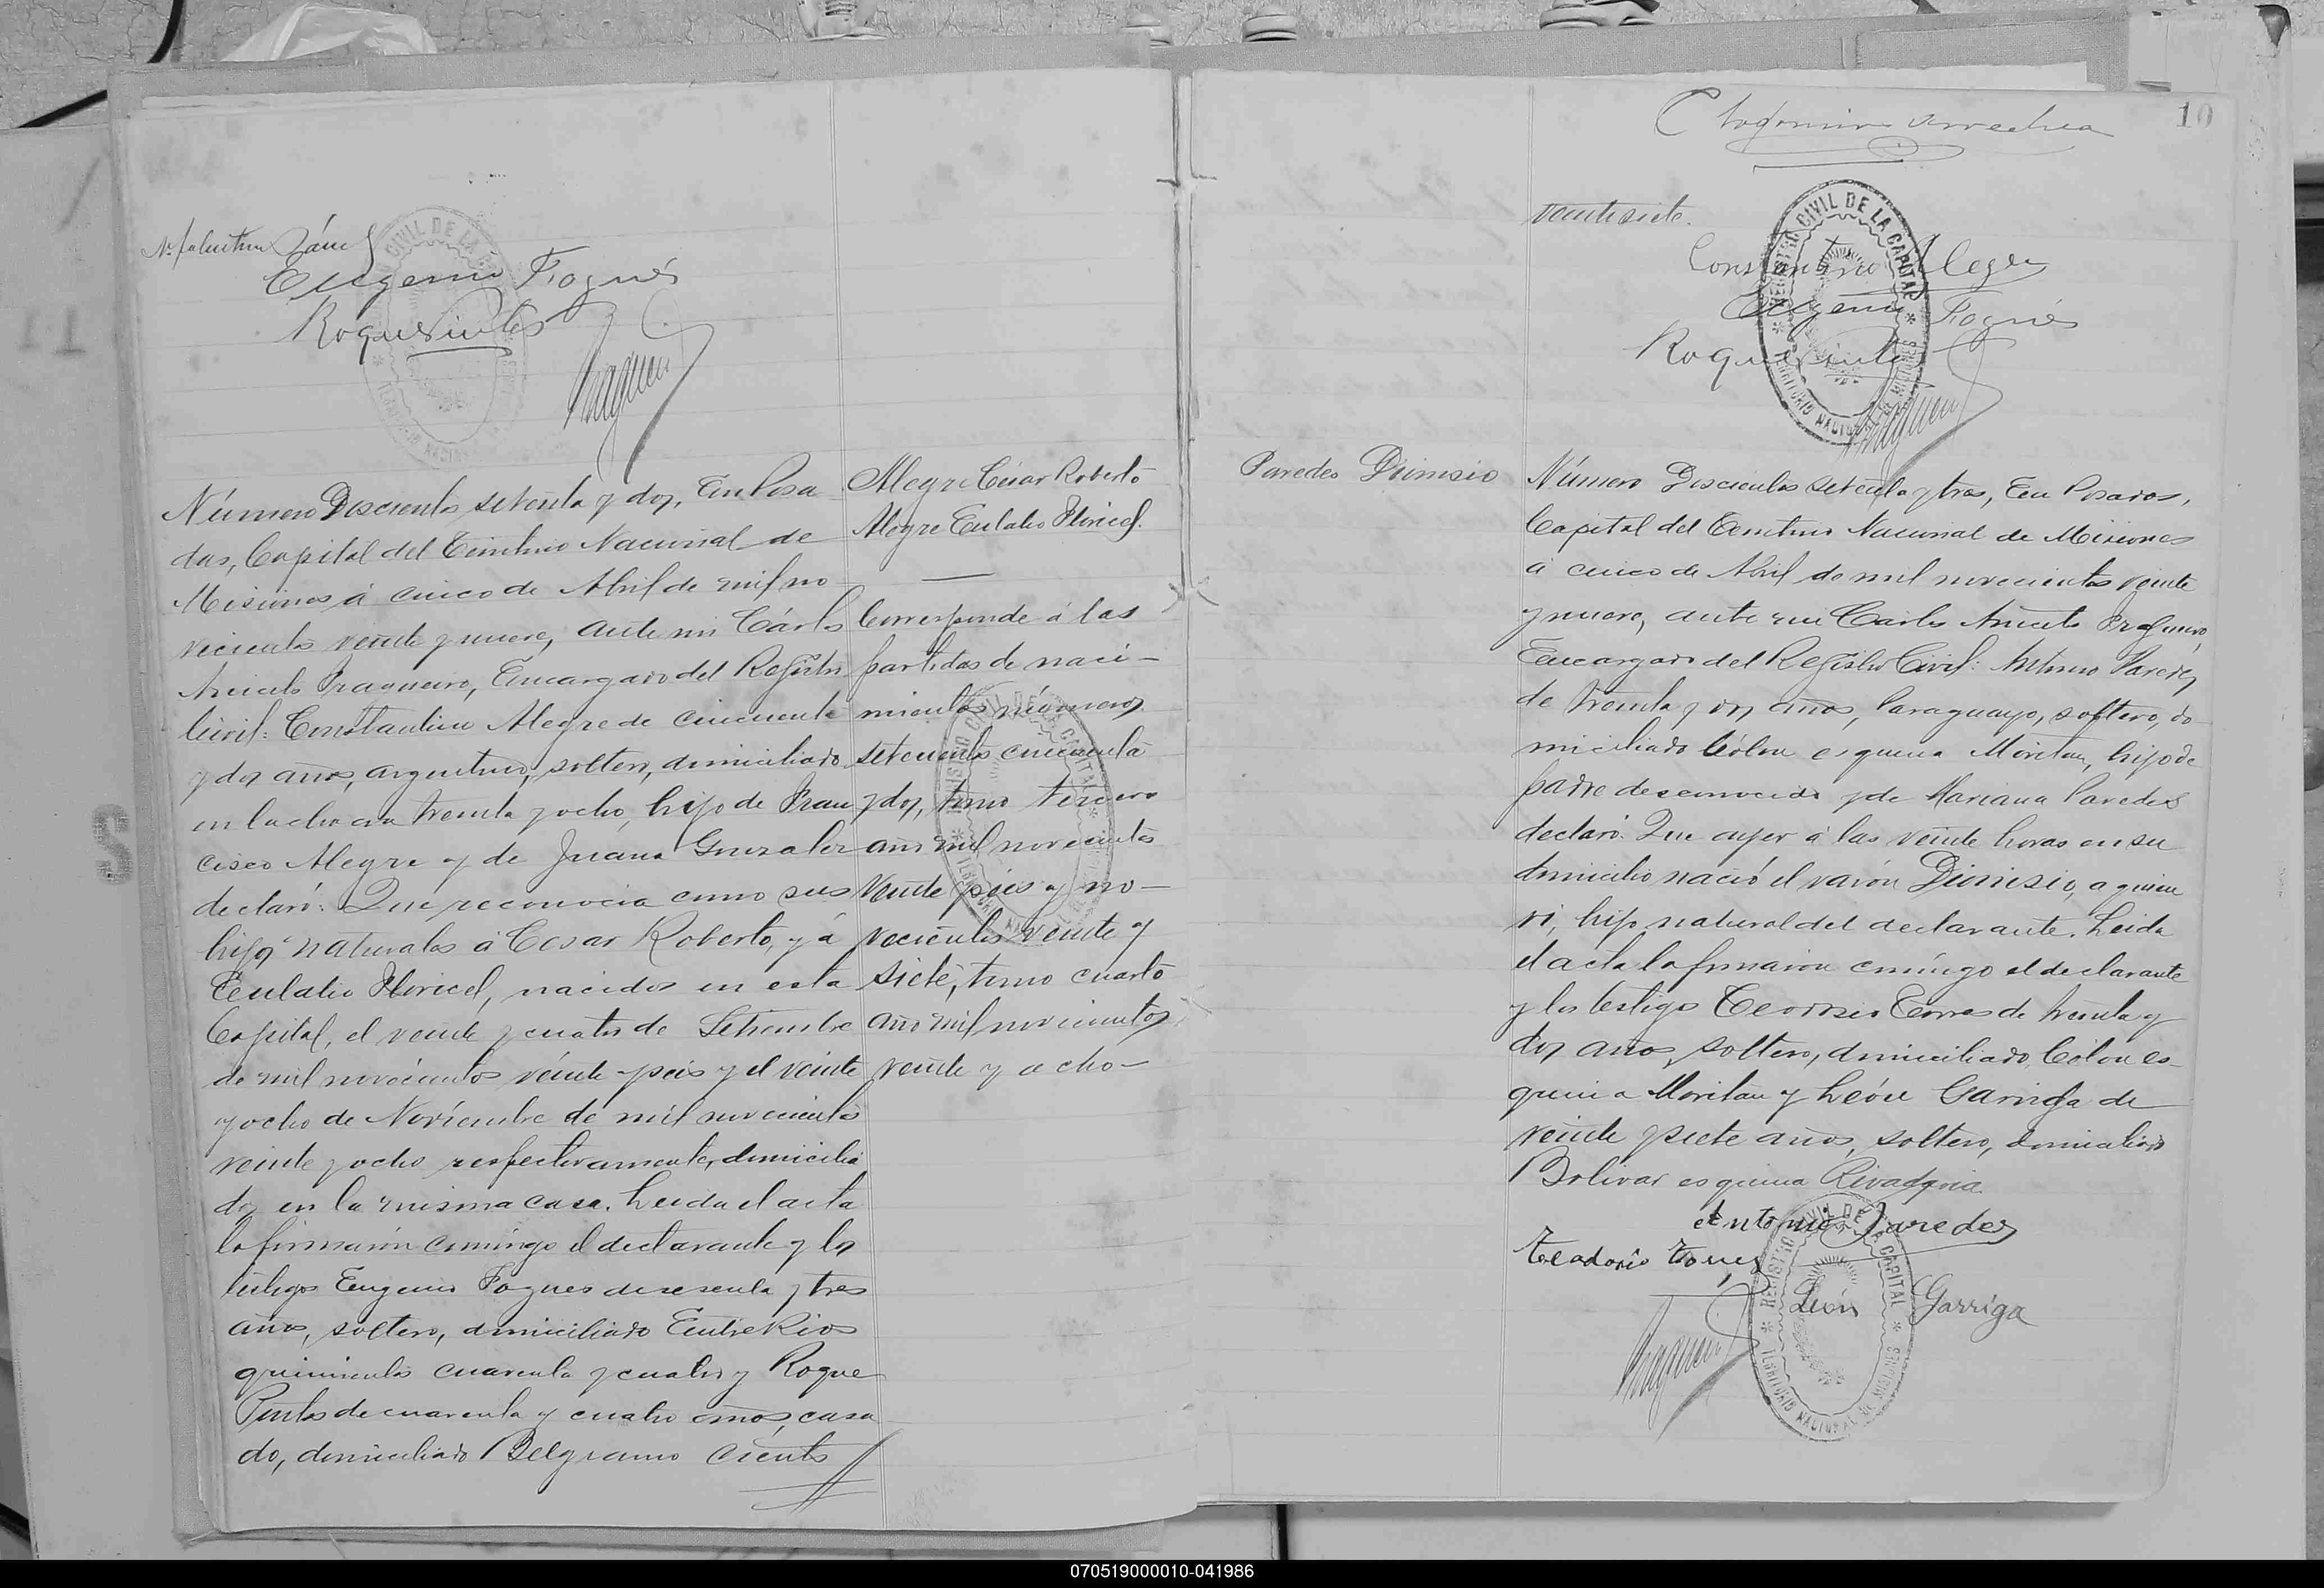 Eugenio Fogués
Roque Pintos
REGISTRO CIVIL DE LA CAPITAL
Número Doscientos setenta y dos, En Posa
das, Capital del Territorio Nacional de
Misiones á cinco de Abril de mil no
vecientos veinte y nueve, ante mi Cárlos
Aniceto Fragueiro, Encargado del Registro
Civil: Constantino Alegre de cincuenta
y dos años, argentino, soltero, domiciliado
en la chacra treinta y ocho, hijo de Fran
cisco Alegre y de Juana Gonzalez
declaró: Que reconocia como sus
hijos naturales á Cesar Roberto, y á
Eulalio Floricel, nacidos en esta
Capital, el veinte y cuatro de Setiembre
de mil novecientos veinte y seis y el veinte
y ocho de Noviembre de mil novecientos
veinte y ocho respectivamente, domicilia
dos en la misma casa. Leida el acta
la firmaron conmigo el declarante y los
testigos Eugenio Fogues de sesenta y tres
años, soltero, domiciliado Entre Rios
quinientos cuarenta y cuatro y Roque
Pintos de cuarenta y cuatro años, casa
do, domiciliado Belgrano ciento
Alegre César Roberto
Alegre Eulalio Floricel.
Corresponde á las
partidas de naci-
mientos números
setecientos cincuenta
y dos, tomo tercero
año mil novecientos
veinte y seis y no-
vecientos veinte y
siete, tomo cuarto
año mil novecientos
veinte y ocho-
10
veintisiete.
REGISTRO CIVIL DE LA CAPITAL
TERRITORIO NACIONAL DE MISIONES
Constantino Alegre
Eugenio Fogués
Roque Pintos
Paredes Dionisio
Número Doscientos setenta y tres, En Posadas,
Capital del Territorio Nacional de Misiones
á cinco de Abril de mil novecientos veinte
y nueve, ante mi Carlos Aniceto Fragueiro,
Encargado del Registro Civil: Antonio Paredes,
de treinta y dos años, Paraguayo, soltero, do
miciliado Cólon esquina Moritan, hijo de
padre desconocido y de Mariana Paredes
declaró: Que ayer á las veinte horas en su
domicilio nació el varón Dionisio, a quien
vi, hijo natural del declarante. Leida
el acta la firmaron conmigo el declarante
y los testigos Teodosio Torres de treinta y
dos años, soltero, domiciliado Cólon es-
quina Moritan y León Garriga de
veinte y siete años, soltero, domiciliado
Bolivar esquina Rivadavia.
Antonio Paredes
Teodosio Torres
León Garriga
REGISTRO CIVIL DE LA CAPITAL
TERRITORIO NACIONAL DE MISIONES
070519000010-041986